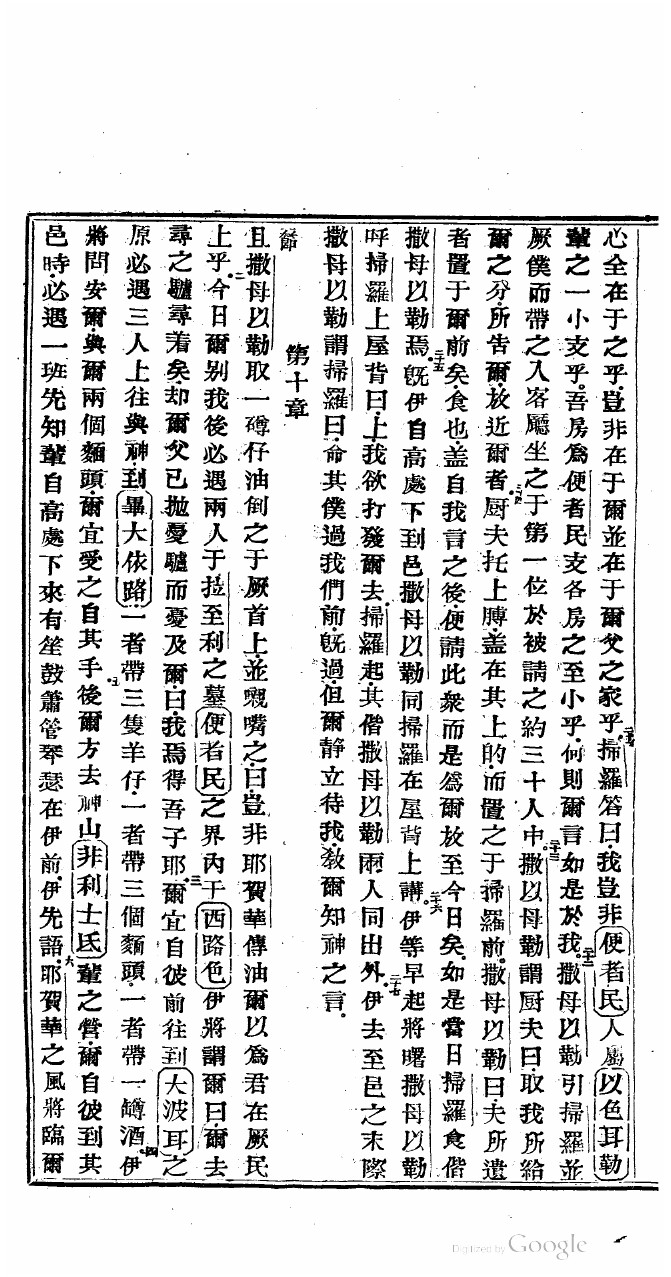 心全在于之乎豈非在于爾並在于爾父之家乎二十一掃羅答曰我豈非便者民人屬以色耳勒
輩之一小支乎吾房爲便者民支各房之至小乎何則爾言如是於我二十二撒母以勒引掃羅並
厥僕而帶之入客廳坐之于第一位於被請之約三十人中二十三撒以母勒謂厨夫曰取我所給
爾之分所告爾放近爾者二十四厨夫托上膊盖在其上的而置之于掃羅前撒母以勒曰夫所遺
者置于爾前矣食也盖自我言之後便請此衆而是爲爾放至今日矣如是當日掃羅食偕
撒母以勒焉二十五旣伊自高處下到邑撒母以勒同掃羅在屋背上講二十六伊等早起將曙撒母以勒
呼掃羅上屋背曰上我欲打發爾去掃羅起其偕撒母以勒兩人同出外二十七伊去至邑之末際
撒母以勒謂掃羅曰命其僕過我們前旣過但爾静立待我敎爾知神之言
第十章
節
且撒母以勒取一罇仔油倒之于厥首上並嘴之曰豈非耶賀華傳油爾以爲君在厥民
上乎二今日爾别我後必遇兩人于拉至利之墓便者民之界內于西路色伊將謂爾曰爾去
尋之驢尋着矣却爾父已抛憂驢而憂及爾曰我焉得吾子耶三爾宜自彼前往到大波耳之
原必遇三人上往與神到畢大依路一者帶三隻羊仔一者帶三個麵頭一者帶一罇酒四伊
將問安爾與爾兩個麵頭爾宜受之自其手五後爾方去神山非利士氏輩之營爾自彼到其
邑時必遇一班先知輩自高處下來有笙鼓簫管琴瑟在伊前伊先語六耶賀華之風將臨爾
Digitized by Google